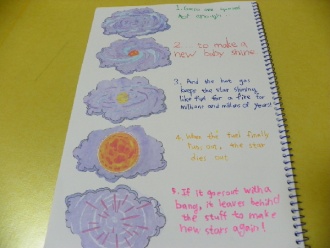 hot enough
2. to make a
new baby shine.
3. And the hot gas
keeps the star shining,
like fuel for a fire for
millions and millions of years!
4. When the fuel finally
runs out, the star
dies out
5. If it goes out with a
bang, it leaves behind
the stuff to make
new stars again!